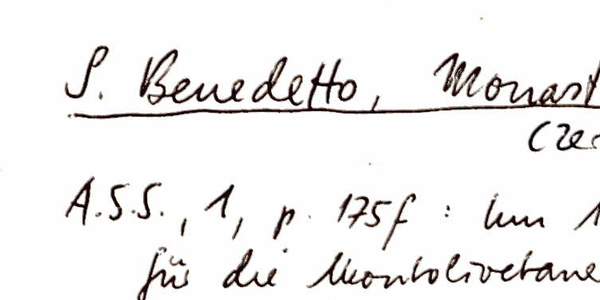 S. Benedetto, Monast
(Zer
A.S.S., 1, p. 175f : Um 1
für die Montolivetane